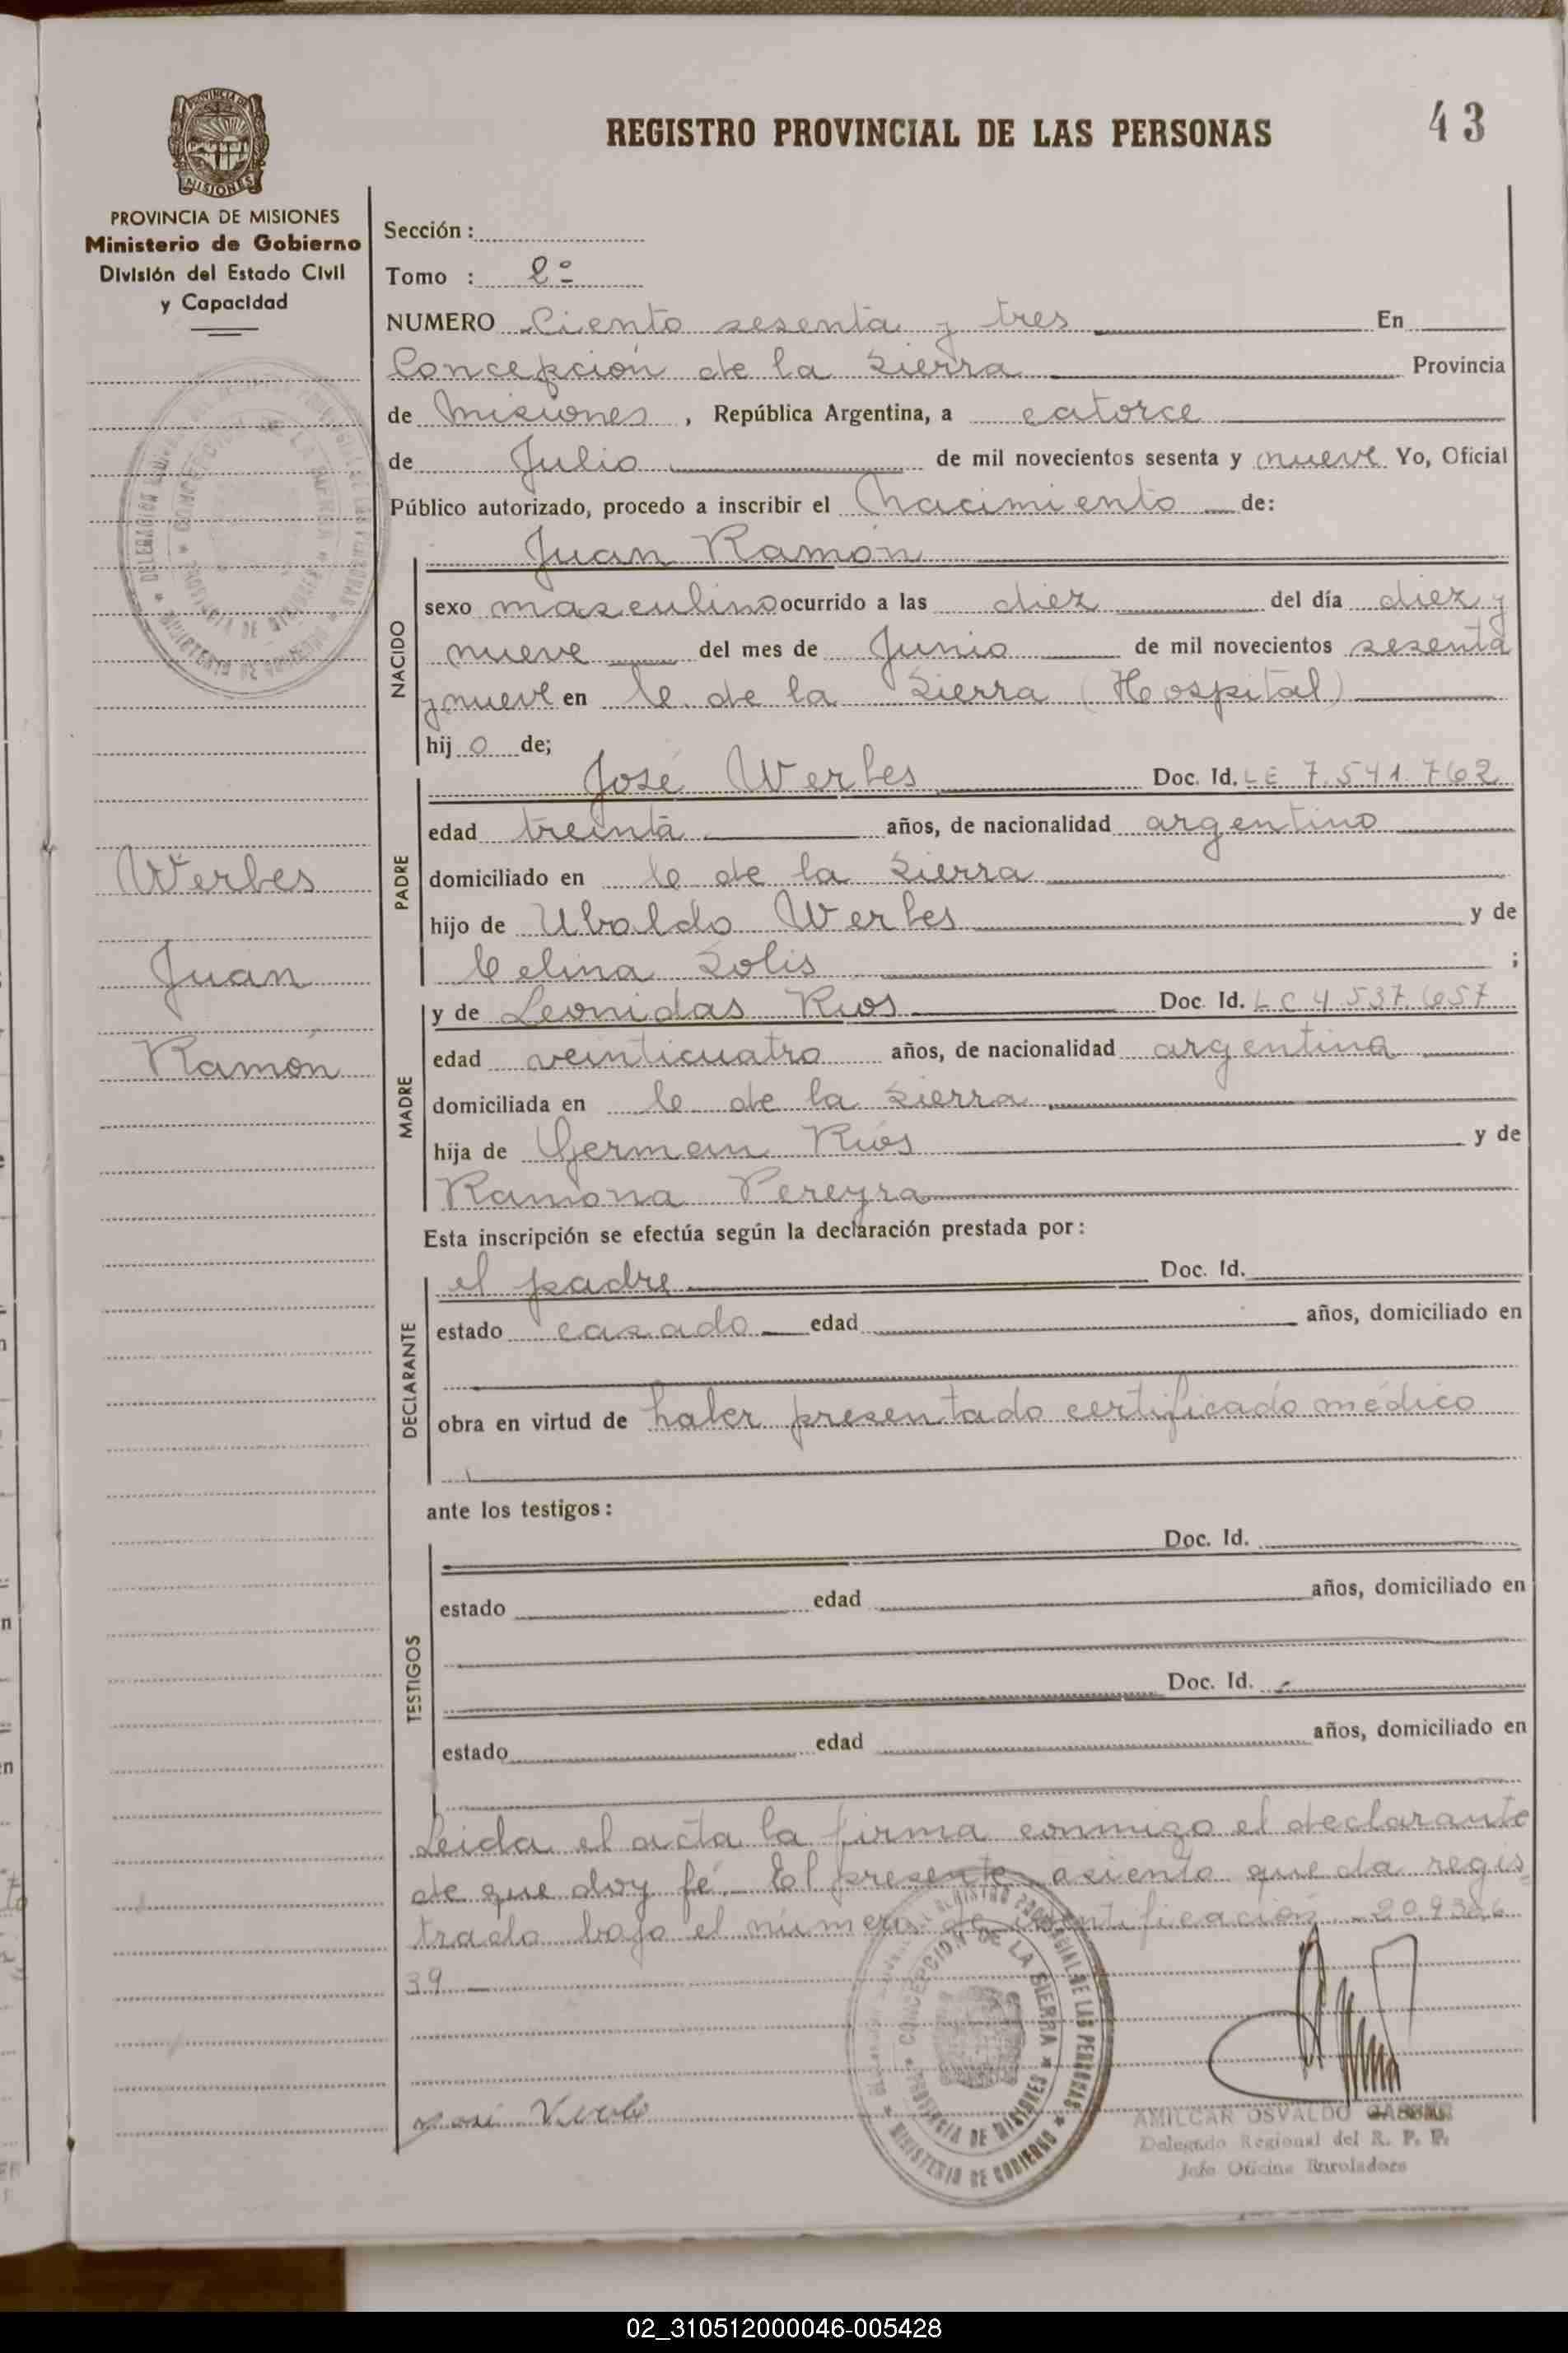 PROVINCIA DE MISIONES
PROVINCIA DE MISIONES
Ministerio de Gobierno
División del Estado Civil
y Capacidad
REGISTRO PROVINCIAL DE LAS PERSONAS
43
Sección :
Tomo : 2º
NUMERO Ciento sesenta y tres En
Concepción de la Sierra Provincia
de Misiones , República Argentina, a catorce
de Julio de mil novecientos sesenta y nueve Yo, Oficial
Público autorizado, procedo a inscribir el Nacimiento de:
NACIDO
Juan Ramón
sexo masculino ocurrido a las diez del día diez y
nueve del mes de Junio de mil novecientos sesenta
y nueve en C. de la Sierra (Hospital)
hij o de;
PADRE
José Werbes Doc. Id. LE 7.541.762
edad treinta años, de nacionalidad argentino
domiciliado en C de la Sierra
hijo de Ubaldo Werbes y de
Celina Solis ;
MADRE
y de Leonidas Rios Doc. Id. LC 4.537.657
edad veinticuatro años, de nacionalidad argentina
domiciliada en C de la Sierra
hija de German Ríos y de
Ramona Pereyra
Esta inscripción se efectúa según la declaración prestada por :
DECLARANTE
el padre Doc. Id.
estado casado edad años, domiciliado en
obra en virtud de haber presentado certificado médico
ante los testigos :
TESTIGOS
Doc. Id.
estado edad años, domiciliado en
Doc. Id.
estado edad años, domiciliado en
Leida el acta la firma conmigo el declarante
de que doy fé.- El presente asiento queda regis
trado bajo el número de identificación 20.9386
39
Werbes
Juan
Ramón
CONCEPCION DE LA SIERRA
PROVINCIA DE MISIONES
MINISTERIO DE GOBIERNO
AMILCAR OSVALDO
Delegado Regional del R. P. P.
Jefe Oficina Enroladora
02_310512000046-005428